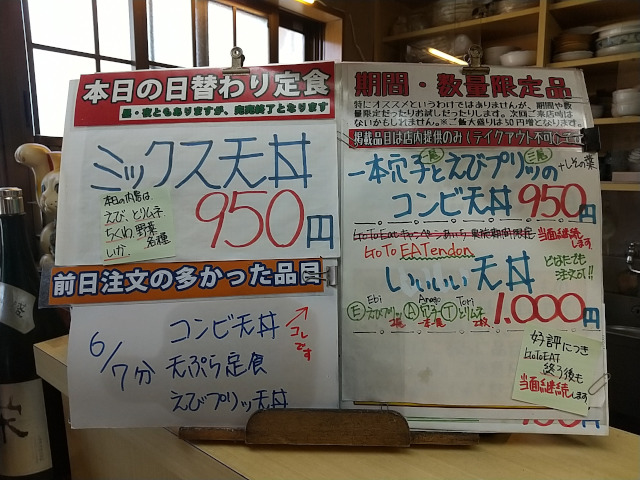 本日の日替わり定食
昼・夜ともありますが、完売終了となります
ミックス天丼
本日の内容は
えび、とりムネ、
ちくわ、野菜
いか、各種
950円
前日注文の多かった品目
6/7分
コンビ天丼
コレです
天ぷら定食
えびプリッツ天丼
期間・数量限定品
特にオススメというわけではありませんが、期間や数
量限定だったりお試しだったりします。次回ご来店時は
ないかもしれません。※ご飯大盛りは50円増となります。
掲載品目は店内提供のみ(テイクアウト不可)
一本穴子とえびプリッツの
+しその葉
コンビ天丼950円
当面継続します
GoTo EATendon
いいいい天丼
どなたでも
注文可!!
Ebi Anago Tori
Eえびプリッツ2尾 A穴子一本 Tとりムネ2枚
1,000円
好評につき
GoToEAT
終了後も
当面継続します